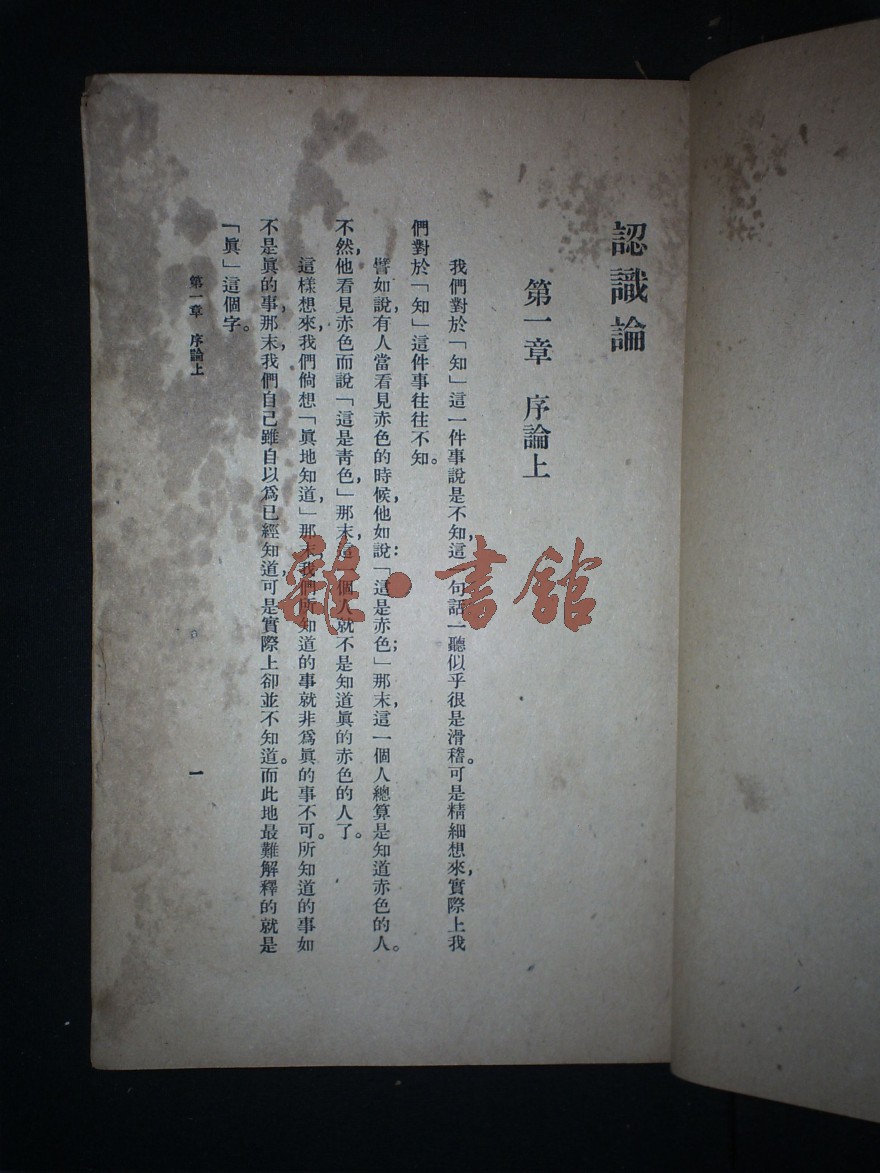 認識論
第一章 序論上
我們對於「知」這一件事說是不知，這一句話一聽似乎很是滑稽。可是精細想來，實際上我
們對於「知」這件事往往不知。
譬如說，有人當看見赤色的時候，他如說：「這是赤色」；那末，這一個人總算是知道赤色的人。
不然，他看見赤色而說「這是靑色，」那末，這一個人就不是知道眞的赤色的人了。
這樣想來，我們倘想「眞地知道，」那末我們所知道的事就非爲眞的事不可。所知道的事如
不是眞的事，那末，我們自己雖自以爲已經知道，可是實際上卻並不知道。而此地最難解釋的就是
「眞」這個字。
第一章 序論上
一
雜·書館